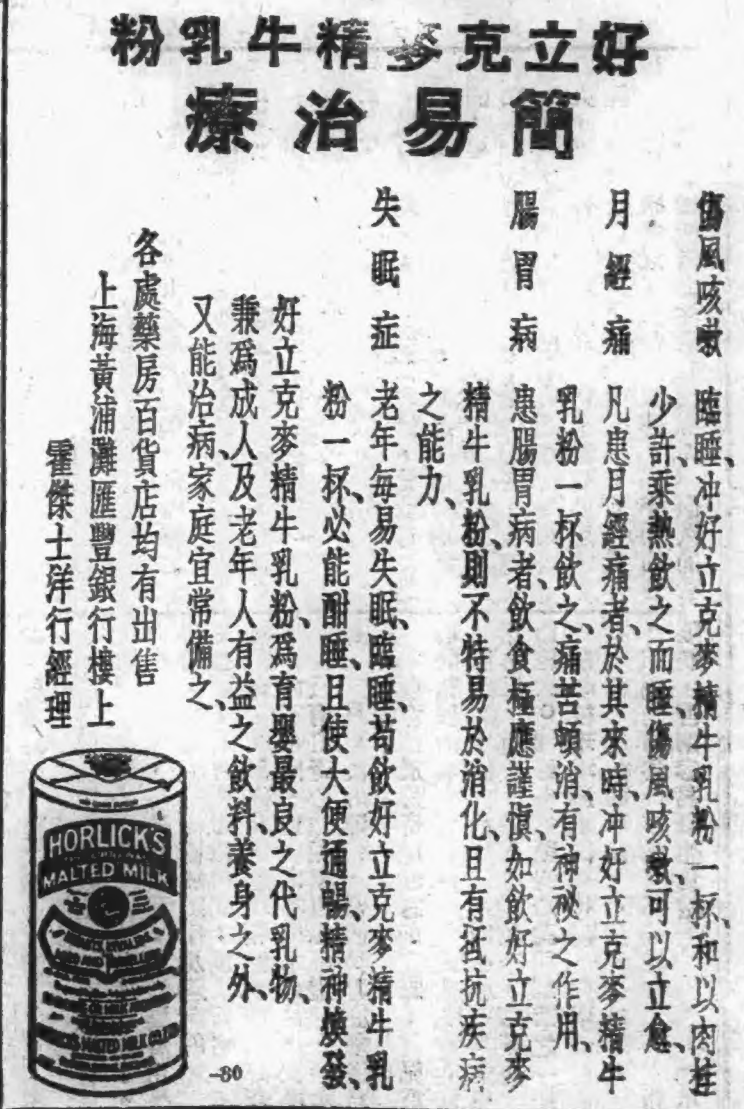 好立克麥精牛乳粉
簡易治療
傷風咳嗽
臨睡、冲好立克麥精牛乳粉一杯、和以肉桂
少許、乘熱飲之而睡、傷風咳嗽、可以立愈、
月經痛
凡患月經痛者、於其來時、冲好立克麥精牛
乳粉一杯飲之、痛苦頓消、有神祕之作用、
腸胃病
患腸胃病者、飲食極應謹慎、如飲好立克麥
精牛乳粉、則不特易於消化、且有抵抗疾病
之能力、
失眠症
老年每易失眠、臨睡、苟飲好立克麥精牛乳
粉一杯、必能酣睡、且使大便通暢、精神煥發、
好立克麥精牛乳粉、爲育嬰最良之代乳物、
兼爲成人及老年人有益之飲料、養身之外、
又能治病、家庭宜常備之、
各處藥房百貨店均有出售
上海黃浦灘匯豐銀行樓上
霍傑士洋行經理
HORLICK'S
MALTED MILK
–80